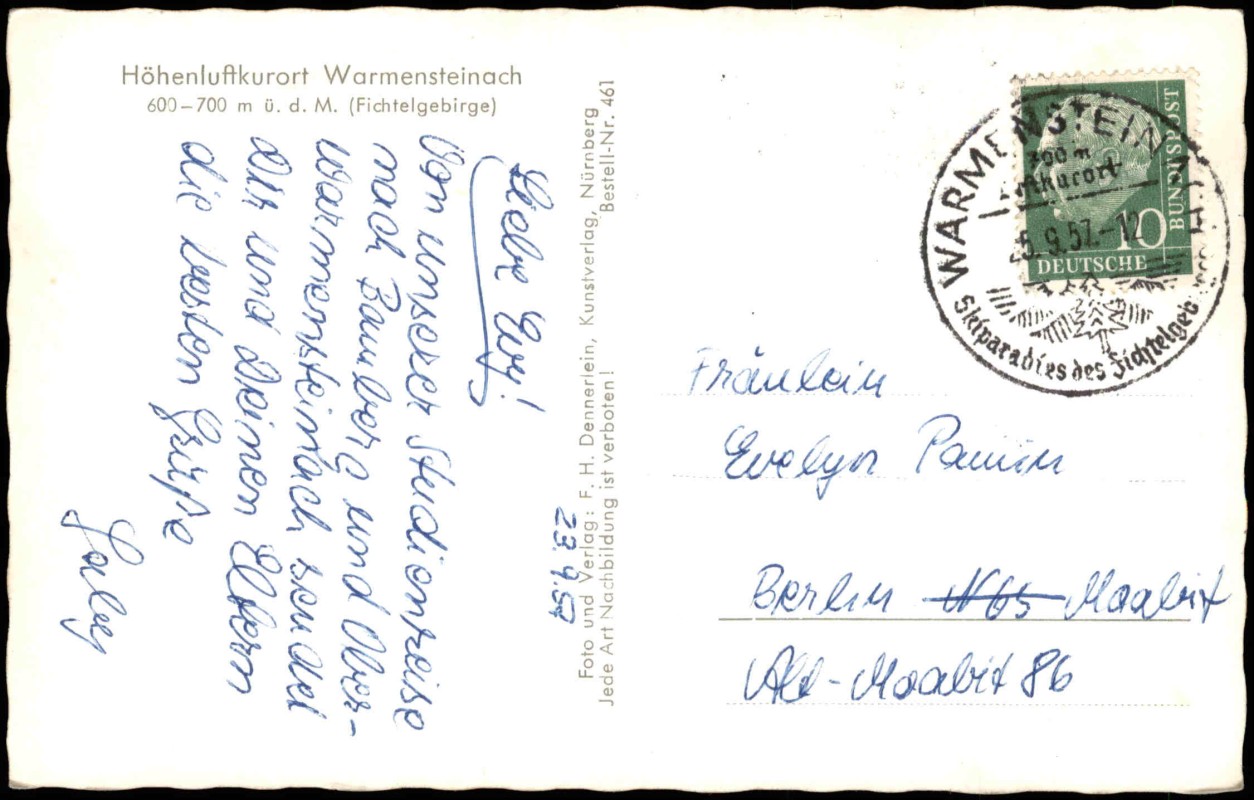 Höhenluftkurort Warmensteinach
600–700 m ü. d. M. (Fichtelgebirge)
23.9.57
Liebe Evy!
Von unserer Studienreise
nach Bamberg und Ober-
warmensteinach sendet
Dir und Deinen Eltern
die besten Grüße
Foto und Verlag: F. H. Dennerlein, Kunstverlag, Nürnberg
Jede Art Nachbildung ist verboten! Bestell-Nr. 461
DEUTSCHE
BUNDESPOST
10
WARMENSTEINACH
700 m
Luftkurort
25.9.57.-12
Skiparadies des Fichtelgeb
Fräulein
Evelyn
Berlin N65 Moabit
Alt-Moabit 86